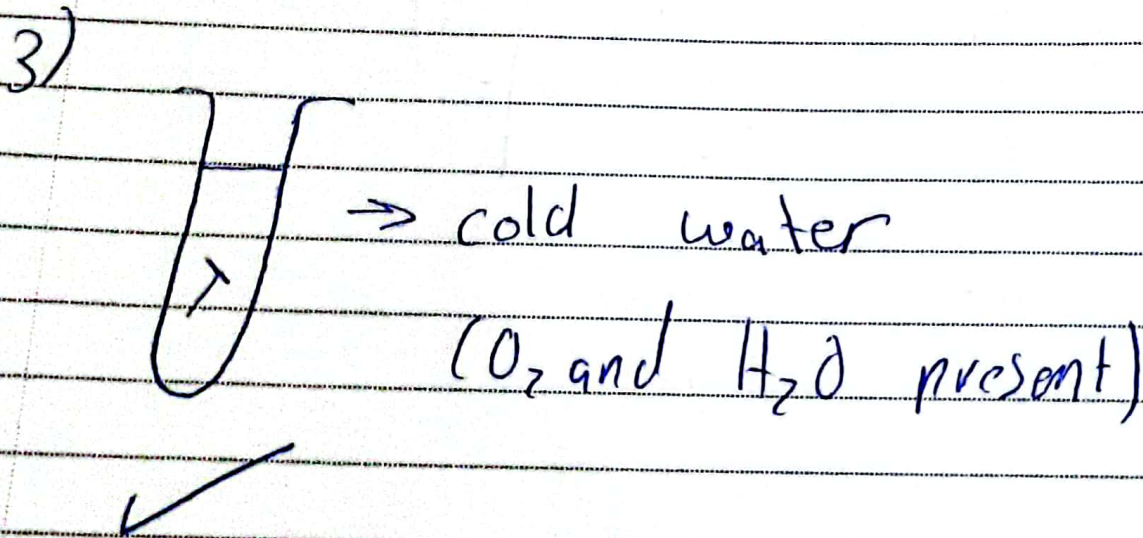 3)
→ cold water
(O₂ and H₂O present)